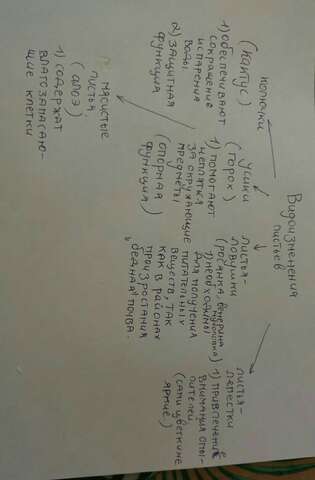 Видоизменения
листьев
колючки
(кактус)
1) обеспечивают
сокращение
испарения
воды
2) защитная
функция
усики
(горох)
1) помогают
цепляться
за окружающие
предметы
(опорная
функция)
листья-
ловушки
(росянка, венерина
мухоловка)
1) необходимы
для получения
питательных
веществ, так
как в районах
произростания
бедная почва.
листья-
лепестки
1) привлечение
внимания опы-
лителей
(сами цветки не
яркие)
мясистые
листья
(алоэ)
1) содержат
влагозапасаю-
щие клетки